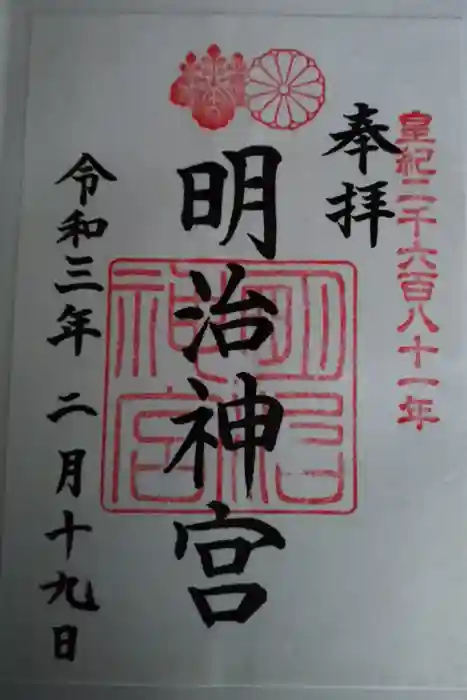 皇紀二千六百八十一年
奉拝
明治神宮
明治神宮
令和三年 二月十九日